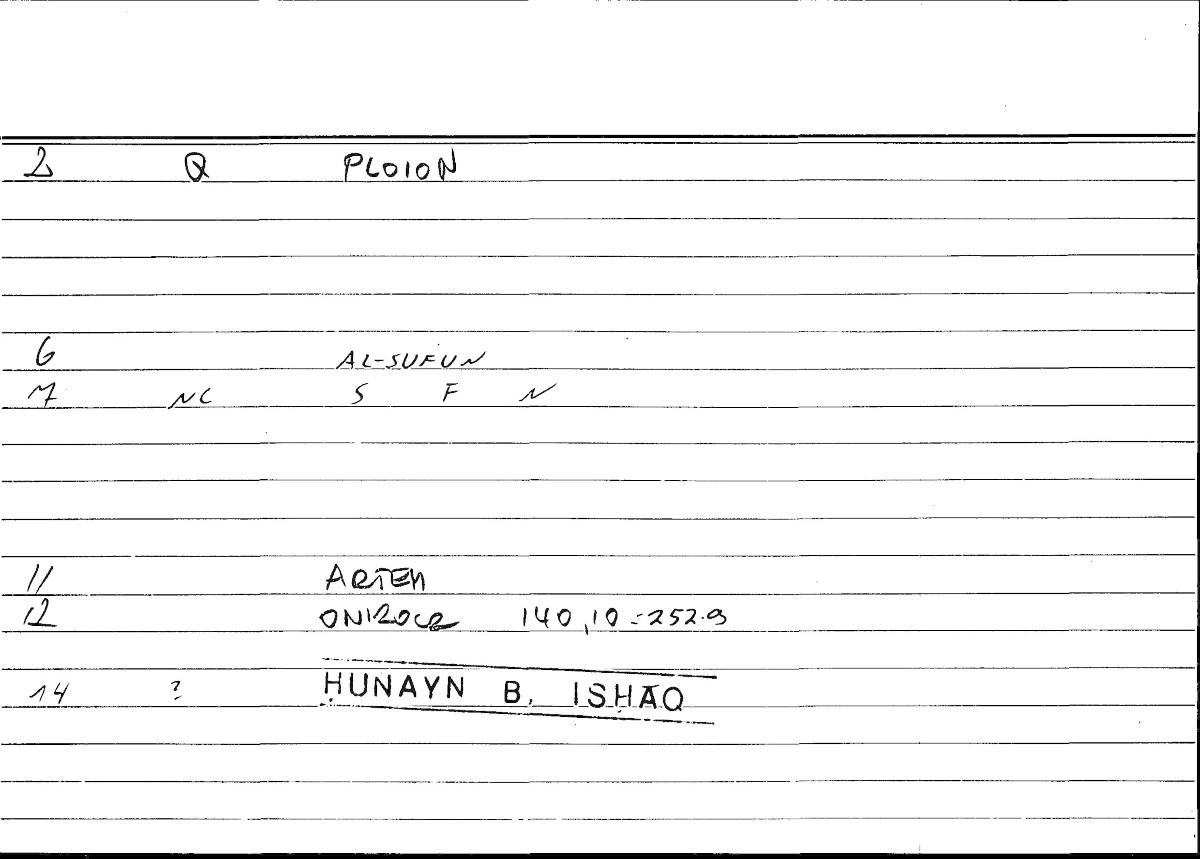 2 Q PLOION
6 AL-SUFUN
7 NC S F N
11 ARTEM
12 ONIROCR 140,10 = 252.9
14 ? ḤUNAYN B. ISḤĀQ